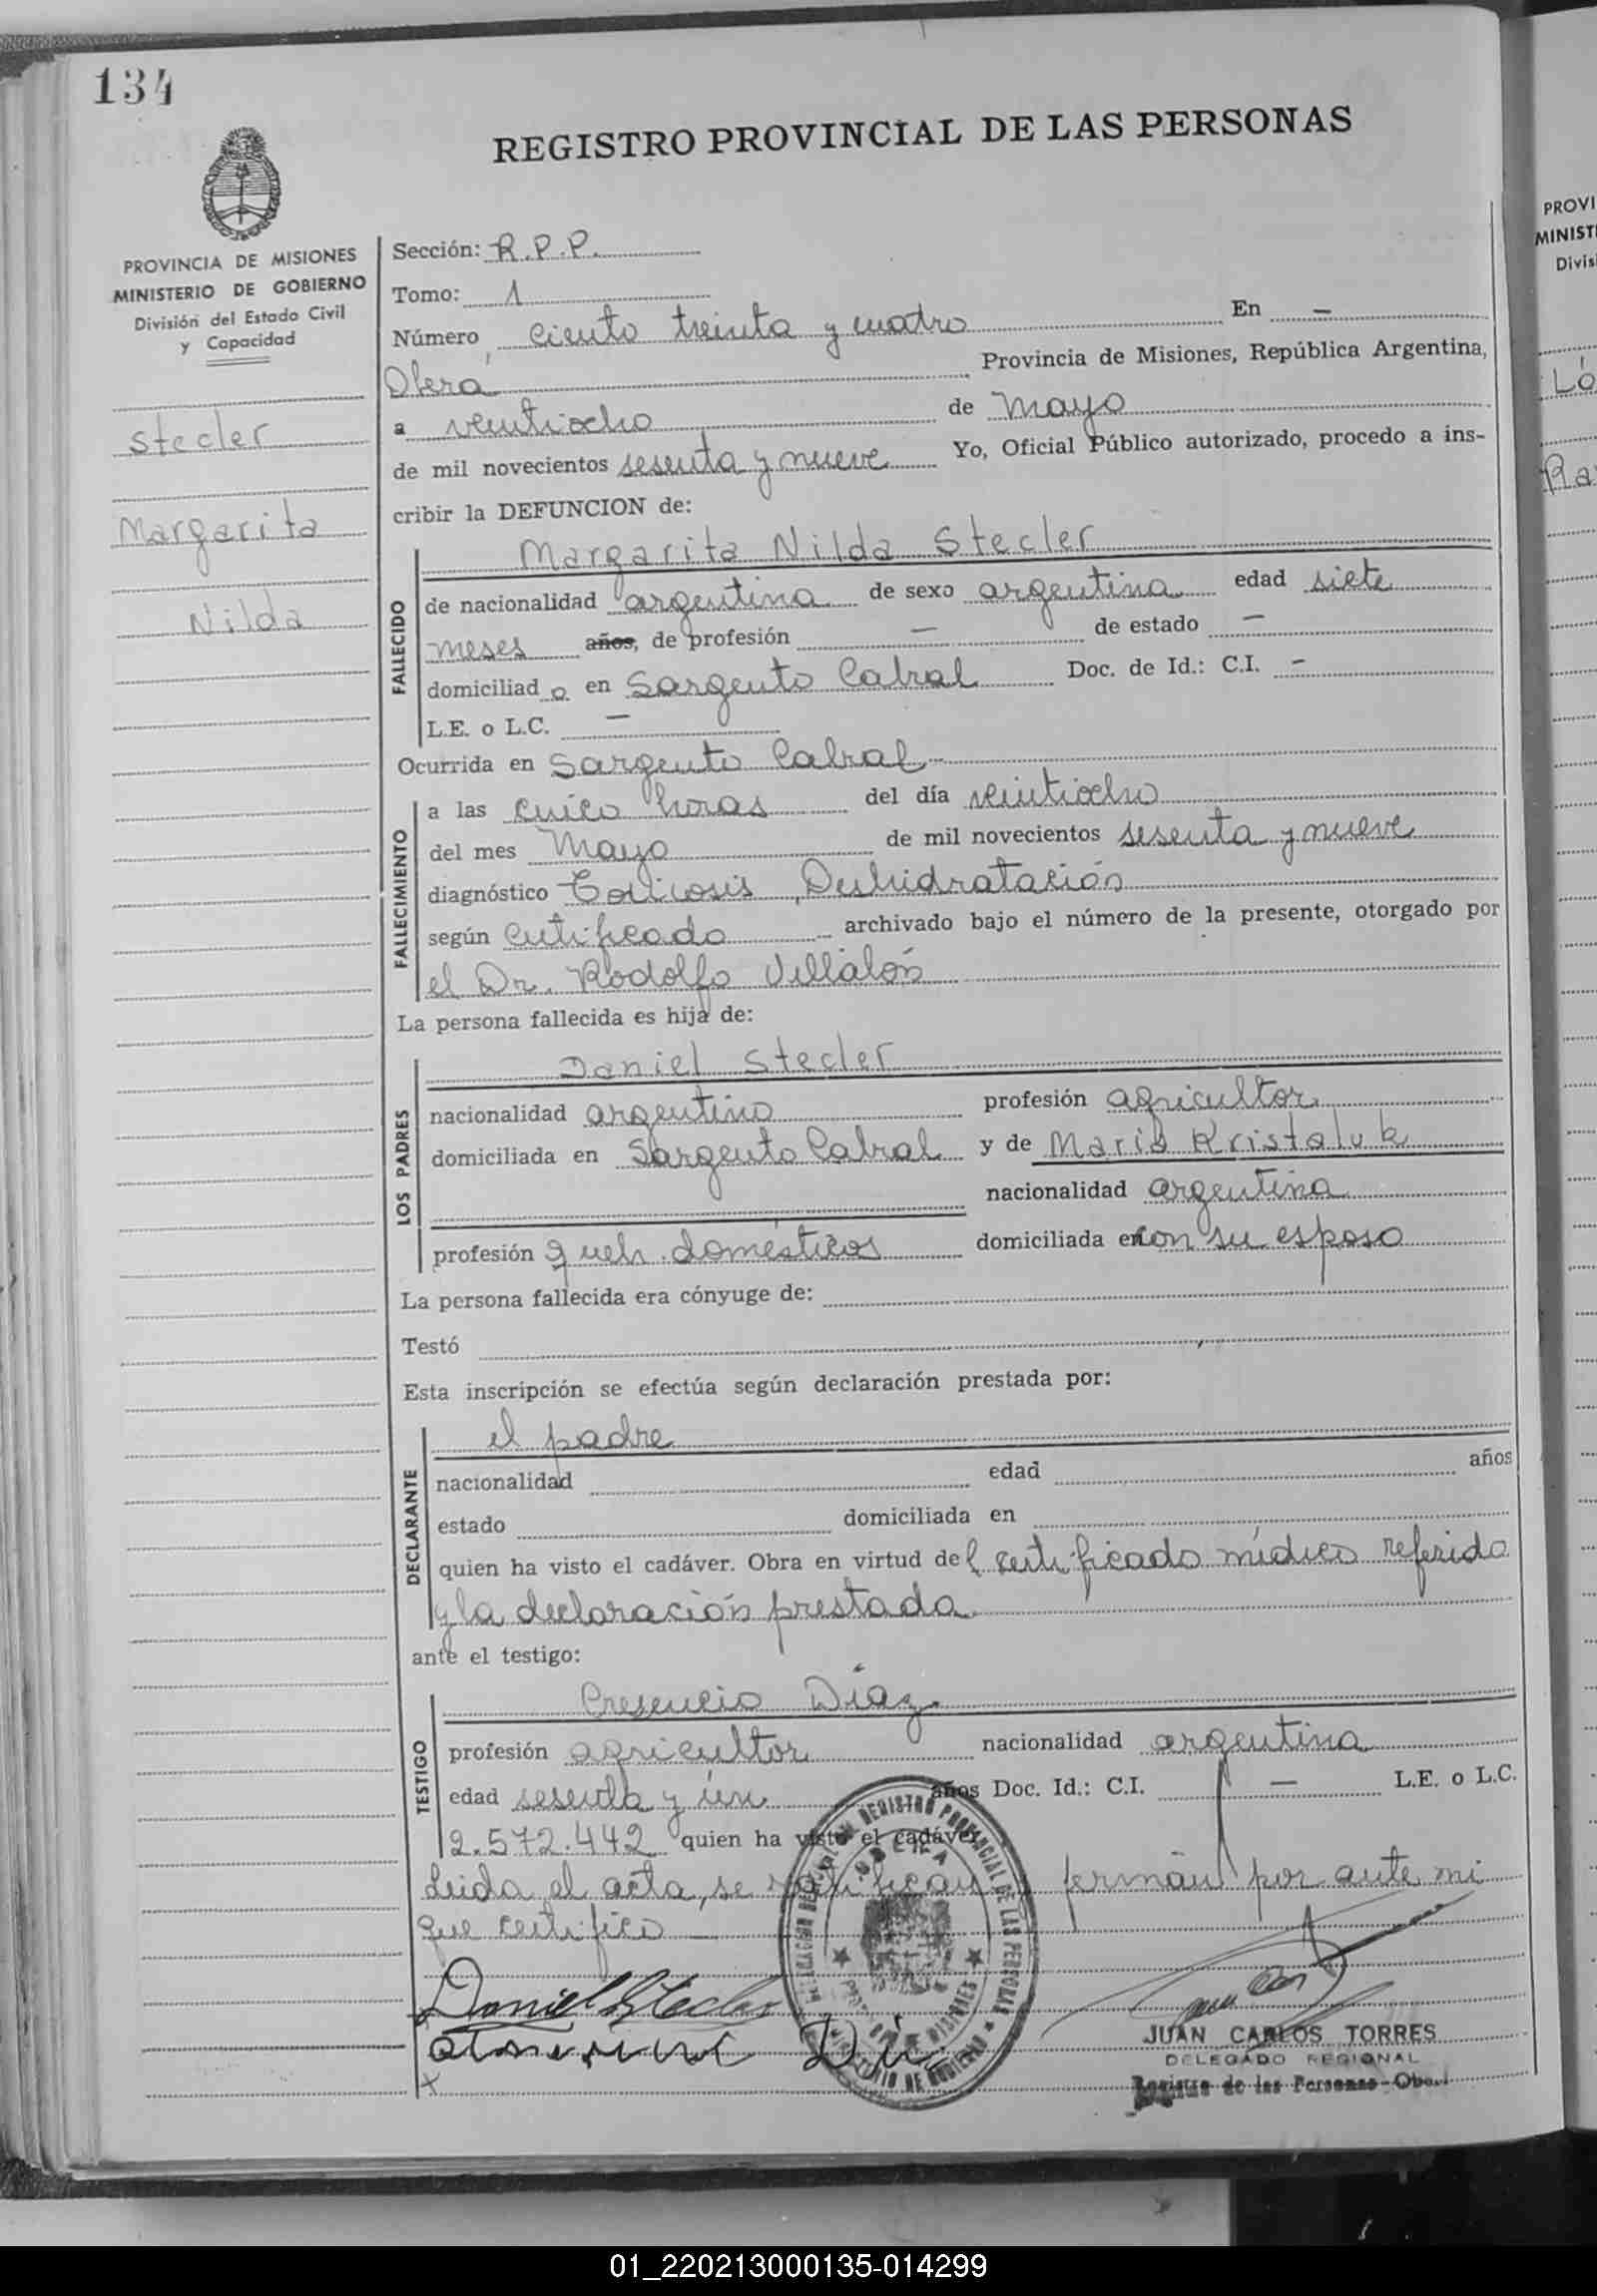 134
REGISTRO PROVINCIAL DE LAS PERSONAS
PROVINCIA DE MISIONES
MINISTERIO DE GOBIERNO
División del Estado Civil
y Capacidad
Stecler
Margarita
Nilda
Sección: R.P.P.
Tomo: 1
Número ciento treinta y cuatro En —
Oberá Provincia de Misiones, República Argentina,
a veintiocho de Mayo
de mil novecientos sesenta y nueve Yo, Oficial Público autorizado, procedo a ins-
cribir la DEFUNCION de:
FALLECIDO
Margarita Nilda Stecler
de nacionalidad argentina de sexo argentina edad siete
meses años, de profesión — de estado —
domiciliad o en Sargento Cabral Doc. de Id.: C.I. —
L.E. o L.C. —
Ocurrida en Sargento Cabral
FALLECIMIENTO
a las cinco horas del día veintiocho
del mes Mayo de mil novecientos sesenta y nueve
diagnóstico Toxicosis, Deshidratación
según certificado archivado bajo el número de la presente, otorgado por
el Dr. Rodolfo Villalón
La persona fallecida es hija de:
LOS PADRES
Daniel Stecler
nacionalidad argentino profesión agricultor
domiciliada en Sargento Cabral y de Maria Kristaluk
nacionalidad argentina
profesión queh. domésticos domiciliada en con su esposo
La persona fallecida era cónyuge de:
Testó
Esta inscripción se efectúa según declaración prestada por:
DECLARANTE
el padre
nacionalidad edad años
estado domiciliada en
quien ha visto el cadáver. Obra en virtud del certificado médico referido
y la declaración prestada
ante el testigo:
TESTIGO
Cresencio Díaz
profesión agricultor nacionalidad argentina
edad sesenta y un años Doc. Id.: C.I. — L.E. o L.C.
2.572.442 quien ha visto el cadáver
Leida el acta, se ratifican firman por ante mi
que certifico —
REGISTRO PROVINCIAL DE LAS PERSONAS
OBERA
MINISTERIO DE GOBIERNO
Daniel Stecler
JUAN CARLOS TORRES
DELEGADO REGIONAL
Registro de las Personas-Oberá
PROVI
MINIST
Divis
Ló
Ra
01_220213000135-014299